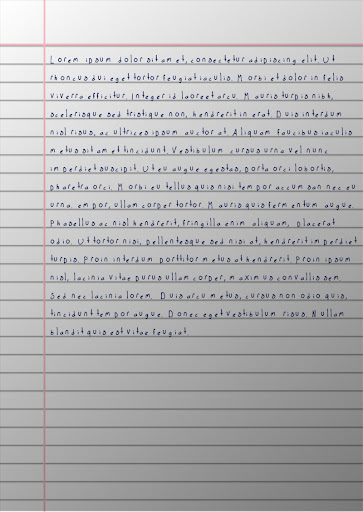 Lorem ipsum dolor sit amet, consectetur adipiscing elit. Ut
rhoncus dui eget tortor feugiat iaculis. Morbi et dolor in felis
viverra efficitur. Integer id laoreet arcu. Mauris turpis nibh,
scelerisque sed tristique non, hendrerit in erat. Duis interdum
nisl risus, ac ultrices ipsum auctor at. Aliquam faucibus iaculis
metus sit amet tincidunt. Vestibulum cursus urna vel nunc
imperdiet suscipit. Ut eu augue egestas, porta orci lobortis,
pharetra orci. Morbi eu tellus quis nisi tempor accumsan nec eu
urna. empor, ullamcorper tortor. Mauris quis fermentum augue.
Phasellus ac nisl hendrerit, fringilla enim aliquam, placerat
odio. Ut tortor nisi, pellentesque sed nisi at, hendrerit imperdiet
turpis. Proin interdum porttitor metus at hendrerit. Proin ipsum
nisl, lacinia vitae purus ullamcorper, maximus convallis sem.
Sed nec lacinia lorem. Duis arcu metus, cursus non odio quis,
tincidunt tempor augue. Donec eget vestibulum risus. Nullam
blandit quis est vitae feugiat.